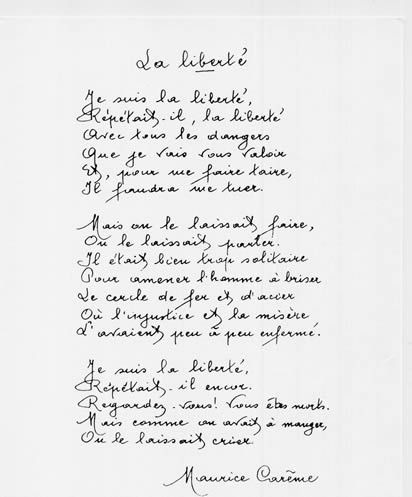 La liberté
Je suis la liberté,
Répétait-il, la liberté
Avec tous les dangers
Que je vais vous valoir
Et, pour me faire taire,
Il faudra me tuer.
Mais on le laissait faire,
On le laissait parler.
Il était bien trop solitaire
Pour amener l'homme à briser
Le cercle de fer et d'acier
Où l'injustice et la misère
L'avaient peu à peu enfermé.
Je suis la liberté,
Répétait-il encor.
Regardez-vous! Vous êtes morts.
Mais comme on avait à manger,
On le laissait crier.
Maurice Carême